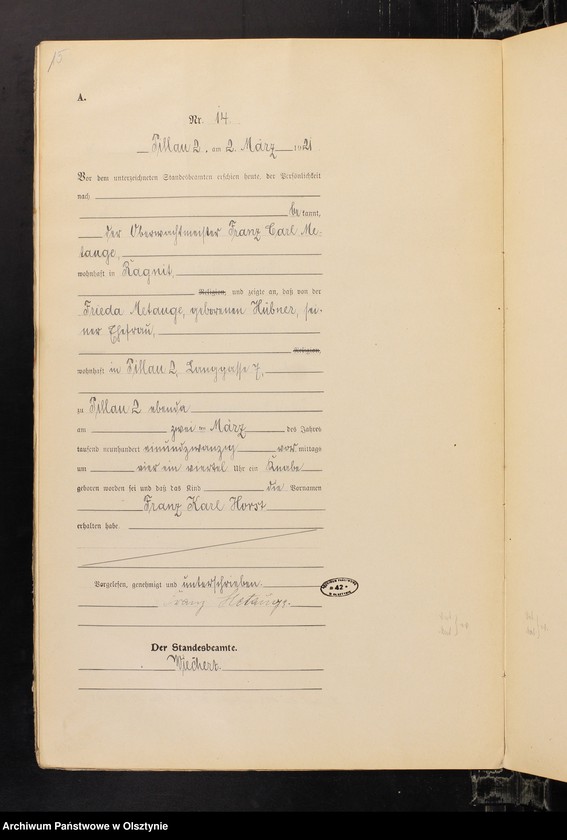 15.
A.
Nr. 14.
Pillau 2. am 2. März 1921
Vor dem unterzeichneten Standesbeamten erschien heute, der Persönlichkeit
nach
be kannt,
der Oberwachtmeister Franz Carl Me-
tange,
wohnhaft in Ragnit,
Religion, und zeigte an, daß von der
Frieda Metange, geborenen Hübner, sei-
ner Ehefrau,
Religion,
wohnhaft in Pillau 2, Langgasse 7,
zu Pillau 2 ebenda
am zwei ten März des Jahres
tausend neunhundert einundzwanzig vor mittags
um vier ein viertel Uhr ein Knabe
geboren worden sei und daß das Kind die Vornamen
Franz Karl Horst
erhalten habe.
Vorgelesen, genehmigt und unterschrieben.
Franz Metange.
Der Standesbeamte.
Wiechert.
* 42 *
Archiwum Państwowe w Olsztynie